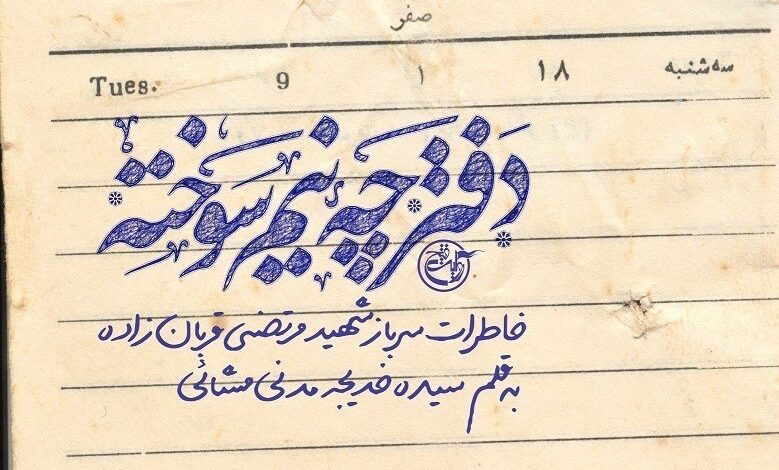 صفر
سه شنبه ۱۸ ۱ 9 Tues.
دفترچه نیم سوخته
خاطرات سرباز شهید مرتضی قربان زاده
به قلم سیده خدیجه مدنی مشائی